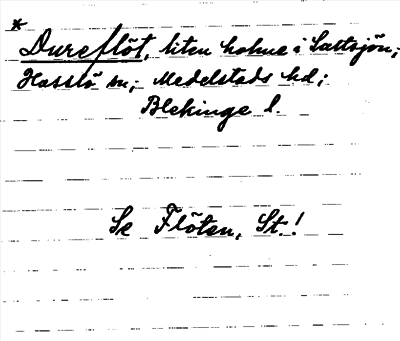 *
Dureflöt, liten holme i Sattsjön;
Hasslö sn; Medelstads hd;
Blekinge l.
Se Flöten, St.!